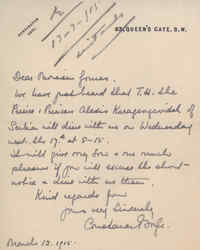 81, QUEEN'S GATE, S.W.
Dear Monsieur
We have just heard that T.H. the
Prince & Princess Alexis Karageorgevitch of
Serbia will dine with us on Wednesday
next the 17th at 8-15.
It will give my Son & me much
pleasure if you will excuse the short
notice & dine with us then.
Kind regards from
yours very Sincerely
March 12. 1915.